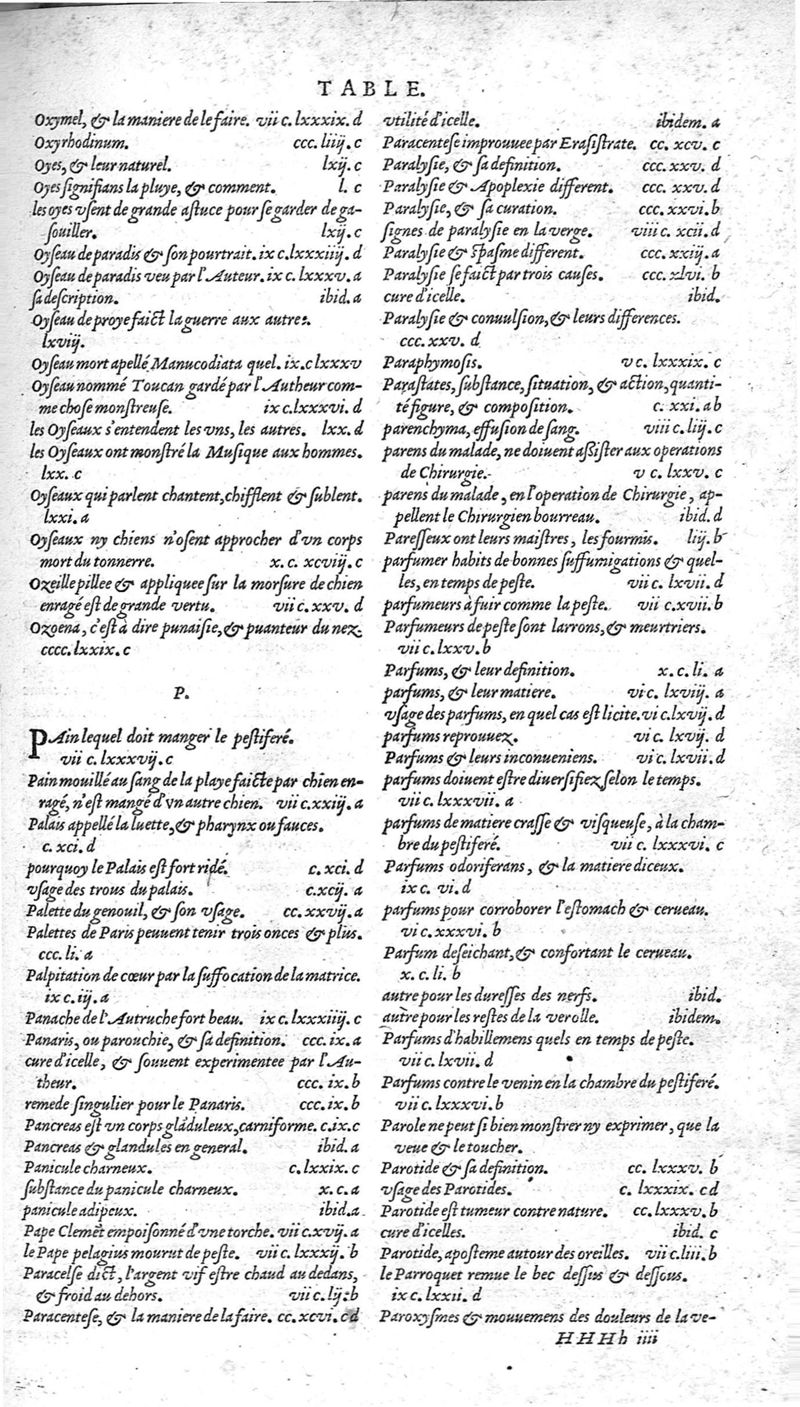 TABLE.
Oxymel, & la maniere de le faire. vii c. lxxxix. d
Oxyrhodinum. ccc. liiij. c
Oyes, & leur naturel. lxij. c
Oyes signifians la pluye, & comment. l. c
les oyes vsent de grande astuce pour se garder de ga-
souiller. lxij. c
Oyseau de paradis & son pourtrait. ix c. lxxxiiij. d
Oyseau de paradis veu par l'Auteur. ix c. lxxxv. a
sa description. ibid. a
Oyseau de proye faict la guerre aux autres.
lxviij.
Oyseau mort apellé Manucodiata quel. ix. c lxxxv
Oyseau nommé Toucan gardé par l'Autheur com-
me chose monstreuse. ix c. lxxxvi. d
les Oyseaux s'entendent les vns, les autres. lxx. d
les Oyseaux ont monstré la Musique aux hommes.
lxx. c
Oyseaux qui parlent chantent, chifflent & sublent.
lxxi. a
Oyseaux ny chiens n'osent approcher d'vn corps
mort du tonnerre. x. c. xcviij. c
Ozeille pillee & appliquee sur la morsure de chien
enragé est de grande vertu. vii c. xxv. d
Ozoena, c'est à dire punaisie, & puanteur du nez.
cccc. lxxix. c
P.
PAin lequel doit manger le pestiferé.
vii c. lxxxvij. c
Pain mouillé au sang de la playe faicte par chien en-
ragé, n'est mangé d'vn autre chien. vii c. xxiij. a
Palais appellé la luette, & pharynx ou fauces.
c. xci. d
pourquoy le Palais est fort ridé. c. xci. d
vsage des trous du palais. c. xcij. a
Palette du genouil, & son vsage. cc. xxvij. a
Palettes de Paris peuuent tenir trois onces & plus.
ccc. li. a
Palpitation de cœur par la suffocation de la matrice.
ix c. iij. a
Panache de l'Autruche fort beau. ix c. lxxxiiij. c
Panaris, ou parouchie, & sa definition. ccc. ix. a
cure d'icelle, & souuent experimentee par l'Au-
theur. ccc. ix. b
remede singulier pour le Panaris. ccc. ix. b
Pancreas est vn corps glãduleux, carniforme. c. ix. c
Pancreas & glandules en general. ibid. a
Panicule charneux. c. lxxix. c
substance du panicule charneux. x. c. a
panicule adipeux. ibid. a
Pape Clemẽt empoisonné d'vne torche. vii c. xvij. a
le Pape pelagius mourut de peste. vii c. lxxxij. b
Paracelse dict, l'argent vif estre chaud au dedans,
& froid au dehors. vii c. lij. b
Paracentese, & la maniere de la faire. cc. xcvi. c d
vtilité d'icelle. ibidem. a
Paracentese improuuee par Erasistrate. cc. xcv. c
Paralysie, & sa definition. ccc. xxv. d
Paralysie & Apoplexie different. ccc. xxv. d
Paralysie, & sa curation. ccc. xxvi. b
signes de paralysie en la verge. viii c. xcii. d
Paralysie & spasme different. ccc. xxiij. a
Paralysie se faict par trois causes. ccc. xlvi. b
cure d'icelle. ibid.
Paralysie & conuulsion, & leurs differences.
ccc. xxv. d
Paraphymosis. v c. lxxxix. c
Parastates, substance, situation, & action, quanti-
té figure, & composition. c. xxi. a b
parenchyma, effusion de sang. viii c. liij. c
parens du malade, ne doiuent assister aux operations
de Chirurgie. v c. lxxv. c
parens du malade, en l'operation de Chirurgie, ap-
pellent le Chirurgien bourreau. ibid. d
Paresseux ont leurs maistres, les fourmis. liij. b
parfumer habits de bonnes suffumigations & quel-
les, en temps de peste. vii c. lxvii. d
parfumeurs à fuir comme la peste. vii c. xvii. b
Parfumeurs de peste sont larrons, & meurtriers.
vii c. lxxv. b
Parfums, & leur definition. x. c. li. a
parfums, & leur matiere. vi c. lxviij. a
vsage des parfums, en quel cas est licite. vi c. lxvij. d
parfums reprouuez. vi c. lxvij. d
Parfums & leurs inconueniens. vi c. lxvii. d
parfums doiuent estre diuersifiez selon le temps.
vii c. lxxxvii. a
parfums de matiere crasse & visqueuse, à la cham-
bre du pestiferé. vii c. lxxxvi. c
Parfums odoriferans, & la matiere d'iceux.
ix c. vi. d
parfums pour corroborer l'estomach & cerueau.
vi c. xxxvi. b
Parfum deseichant, & confortant le cerueau.
x. c. li. b
autre pour les duresses des nerfs. ibid.
autre pour les restes de la verolle. ibidem.
Parfums d'habillemens quels en temps de peste.
vii c. lxvii. d
Parfums contre le venin en la chambre du pestiferé.
vii c. lxxxvi. b
Parole ne peut si bien monstrer ny exprimer, que la
veue & le toucher.
Parotide & sa definition. cc. lxxxv. b
vsage des Parotides. c. lxxxix. c d
Parotide est tumeur contre nature. cc. lxxxv. b
cure d'icelles. ibid. c
Parotide, aposteme autour des oreilles. vii c. liii. b
le Parroquet remue le bec dessus & dessous.
ix c. lxxii. d
Paroxysmes & mouuemens des douleurs de la ve-
HHHh iiii